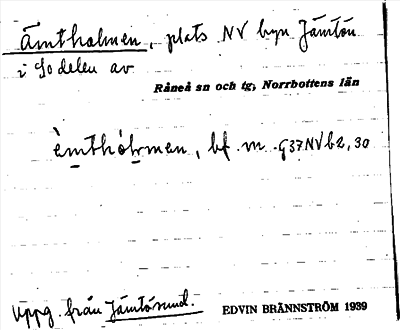 Ämtholmen, plats NV byn Jämtön
i So delen av
Råneå sn och tg, Norrbottens län
èmthólmen, bf. m. G37NVb2,30
Uppg. från Jämtösund.
EDVIN BRÄNNSTRÖM 1939